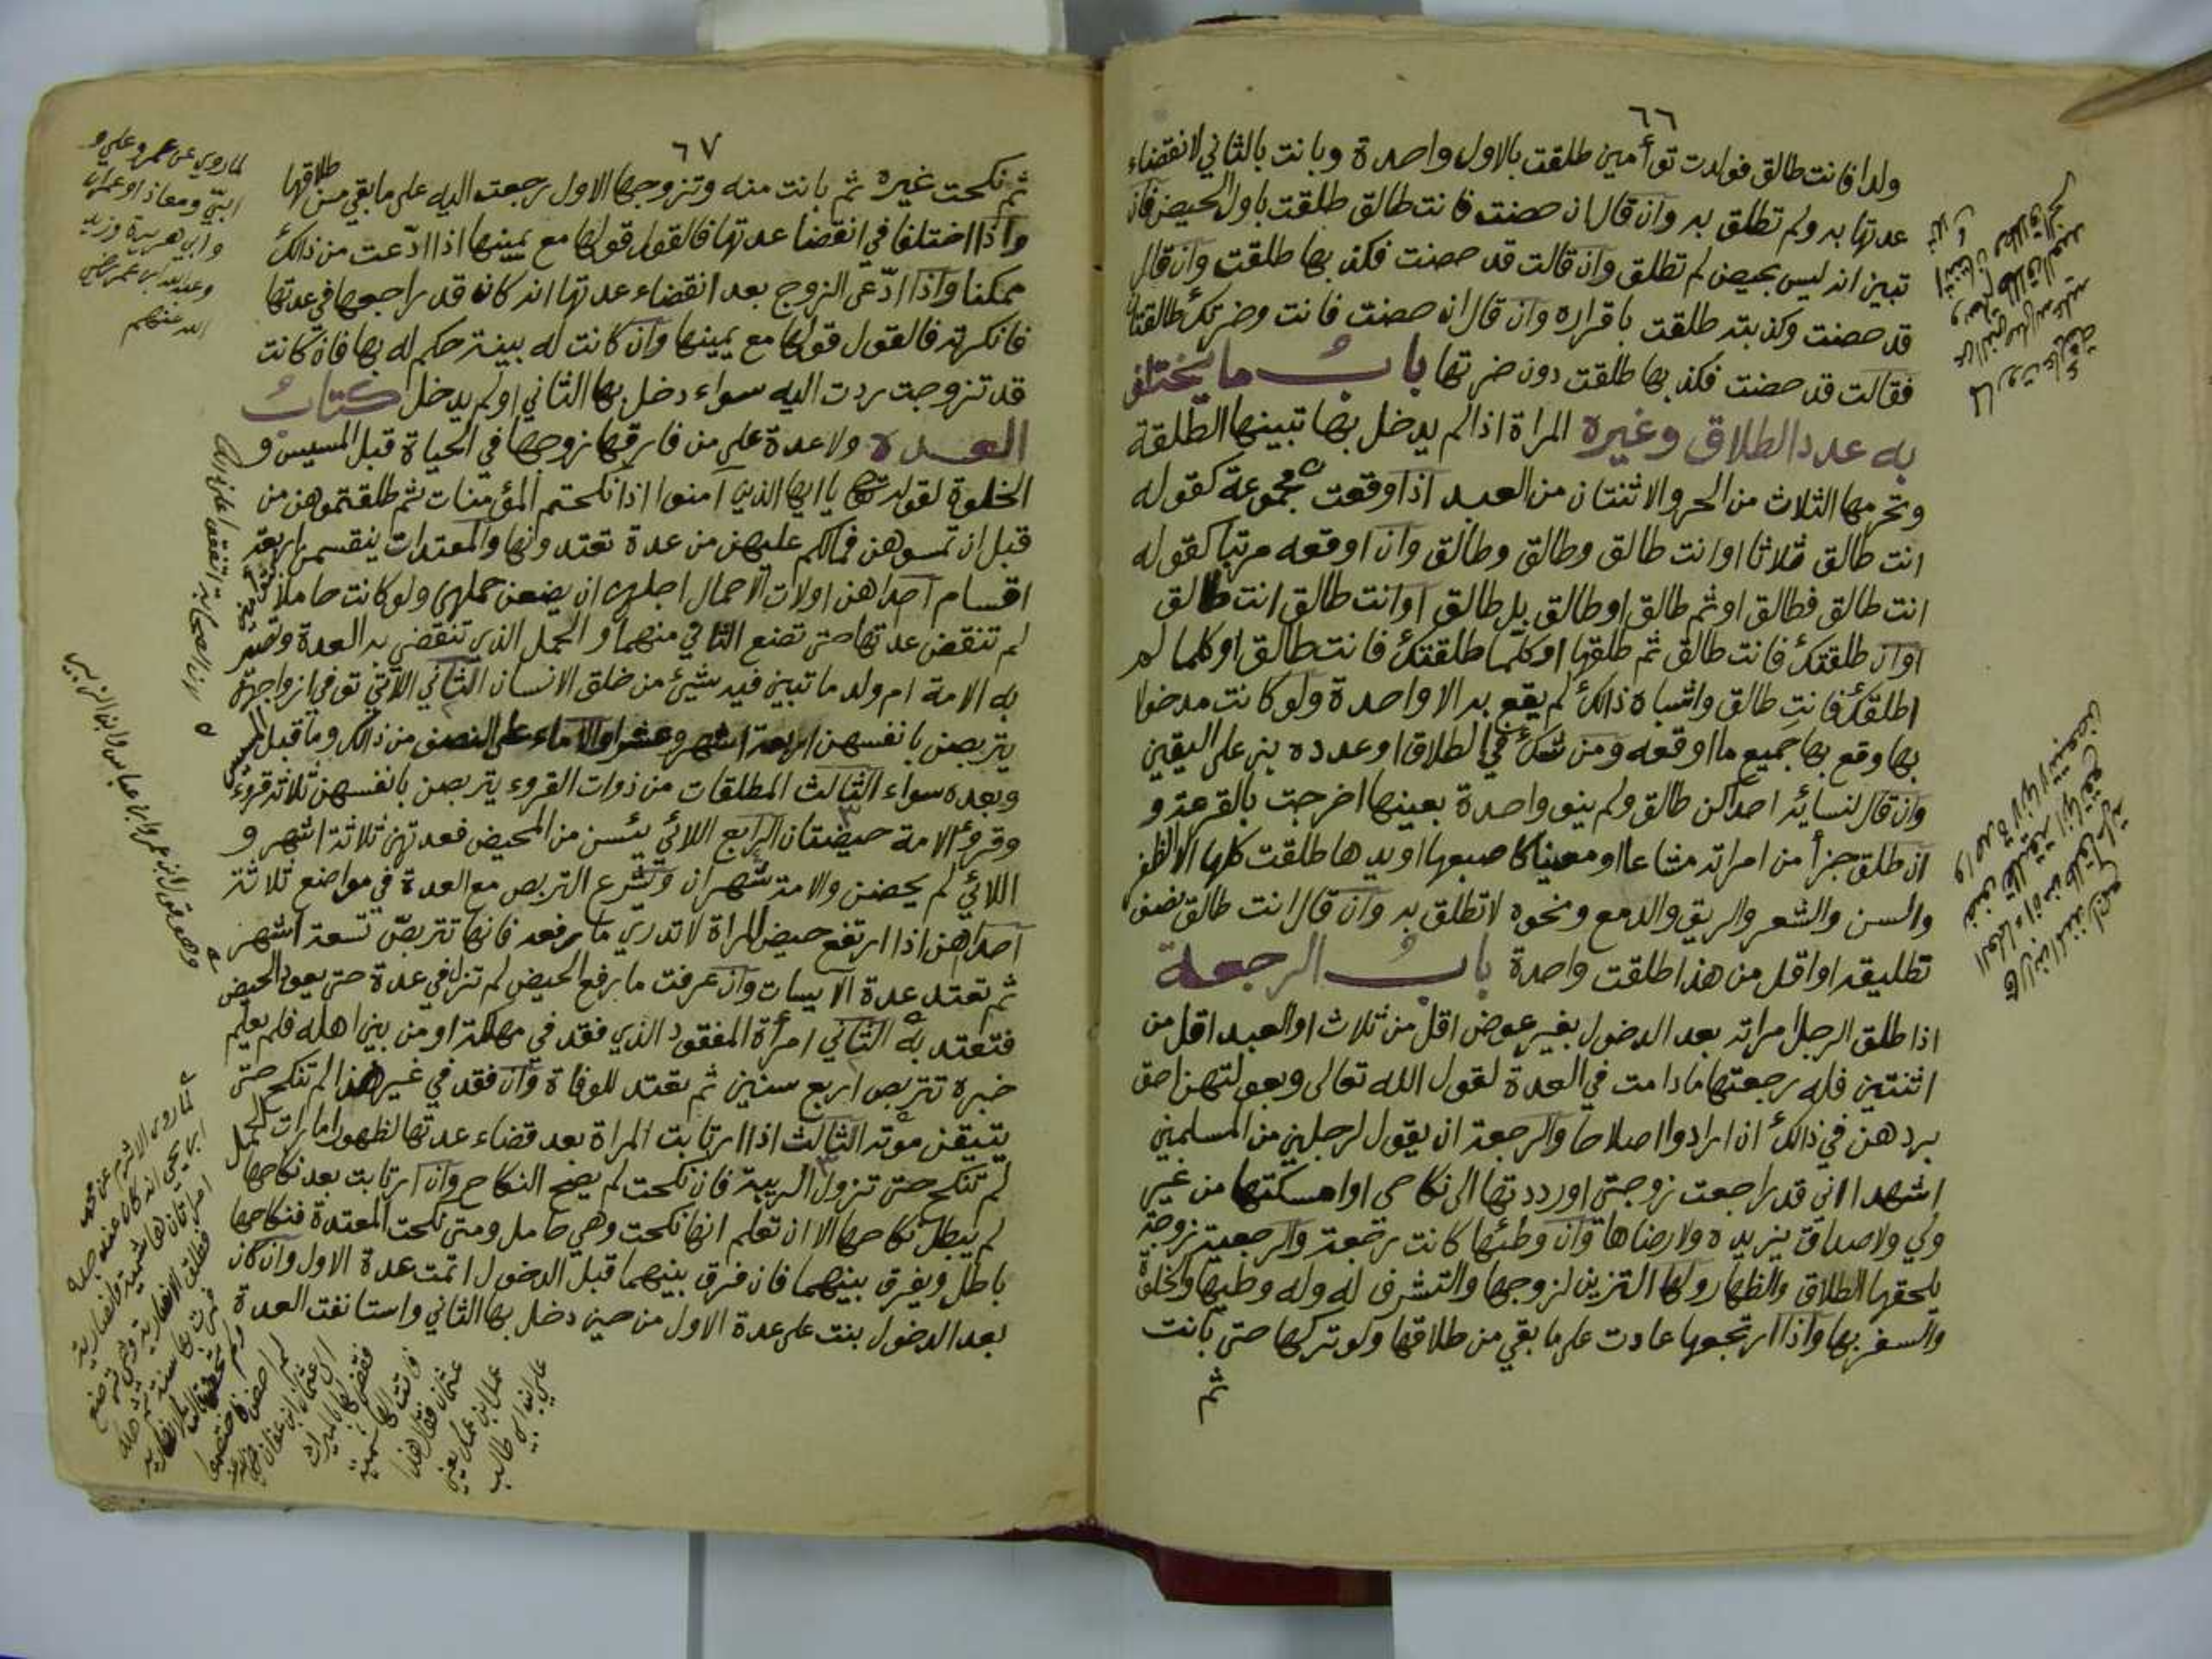 ٦٦
ولدا فانت طالق فولدت توأمين طلقت بالاول واحدة وبانت بالثاني لانقضاء
عدتها به ولم تطلق به وان قال ان حضت فانت طالق طلقت باول الحيض فان
تبين انه ليس بحيض لم تطلق وان قالت قد حضت فكذبها طلقت وان قال
قد حضت وكذبته طلقت باقراره وان قال ان حضت فانت وضرتك طالقتان
فقالت قد حضت فكذبها طلقت دون ضرتها باب ما يختلف
به عدد الطلاق وغيره المراة اذا لم يدخل بها تبينها الطلقة
وتحرمها الثلاث من الحر والاثنتان من العبد اذا وقعت مجموعة كقوله
انت طالق ثلاثا او انت طالق وطالق وطالق وان اوقعه مرتبا كقوله
انت طالق فطالق او ثم طالق او طالق بل طالق او انت طالق انت طالق
او ان طلقتك فانت طالق ثم طلقها او كلما طلقتك فانت طالق او كلما لم
اطلقك فانت طالق واشباه ذالك لم يقع به الا واحدة ولو كانت مدخولا
بها وقع بها جميع ما اوقعه ومن شك في الطلاق او عدده بنى على اليقين
وان قال لنسائه احداكن طالق ولم ينو واحدة بعينها اخرجت بالقرعة و
ان طلق جزأ من امراته مشاعا او معينا كاصبعها او يدها طلقت كلها الا الظفر
والسن والشعر والريق والدمع ونحوه لا تطلق به وان قال انت طالق نصف
تطليقه او اقل من هذا طلقت واحدة باب الرجعة
اذا طلق الرجل امراته بعد الدخول بغير عوض اقل من ثلاث او العبد اقل من
اثنتين فله رجعتها مادامت في العدة لقول الله تعالى وبعولتهن احق
بردهن في ذالك ان ارادوا اصلاحا والرجعة ان يقول لرجلين من المسلمين
اشهدا اني قد راجعت زوجتي او رددتها الى نكاحي او امسكتها من غير
ولي ولا صداق يزيده ولا رضاها وان وطئها كانت رجعة والرجعية زوجة
يلحقها الطلاق والظهار ولها التزين لزوجها والتشرف له وله وطيها والخلوة
والسفر بها واذا ارتجعها عادت على ما بقي من طلاقها ولو تركها حتى بانت
ثم
٦٧
ثم نكحت غيره ثم بانت منه وتزوجها الاول رجعت اليه على ما بقي من طلاقها
واذا اختلفا في انقضا عدتها فالقول قولها مع يمينها اذا ادّعت من ذالك
ممكنا واذا ادّعى الزوج بعد انقضاء عدتها انه كان قد راجعها في عدتها
فانكرته فالقول قولها مع يمينها وان كانت له بينة حكم له بها فان كانت
قد تزوجت ردت اليه سواء دخل بها الثاني او لم يدخل كتاب
العدة ولا عدة على من فارقها زوجها في الحياة قبل المسيس و
الخلوة لقوله تعالى يا ايها الذين آمنوا اذا نكحتم المؤمنات ثم طلقتموهن من
قبل ان تمسوهن فمالكم عليهن من عدة تعتدونها والمعتدات ينقسمن اربعة
اقسام احداهن اولات الاحمال اجلهن ان يضعن حملهن ولو كانت حاملا بتوأمين
لم تنقض عدتها حتى تضع الثاني منهما والحمل الذي تنقضي به العدة وتصير
به الامة ام ولد ما تبين فيه شيئ من خلق الانسان الثاني اللاتي توفي ازواجهن
يتربصن بانفسهن اربعة اشهر وعشرا والاماء على النصف من ذالك وما قبل المسيس
وبعده سواء الثالث المطلقات من ذوات القروء يتربصن بانفسهن ثلاثة قروء
وقروء الامة حيضتان الرابع اللائي يئسن من المحيض فعدتهن ثلاثة اشهر و
اللائي لم يحضن والامة شهران وتشرع التربص مع العدة في مواضع ثلاثة
احداهن اذا ارتفع حيض المراة لا تدري ما رفعه فانها تتربص تسعة اشهر
ثم تعتد عدة الآيسات وان عرفت ما رفع الحيض لم تزل في عدة حتى يعود الحيض
فتعتد به الثاني امرأة المفقود الذي فقد في مهلكة او من بين اهله فلم يعلم
خبره تتربص اربع سنين ثم تعتد للوفاة وان فقد في غير هذا لم تنكح حتى
يتيقن موته الثالث اذا ارتابت المراة بعد قضاء عدتها لظهور امارات الحمل
لم تنكح حتى تزول الريبة فان نكحت لم يصح النكاح وان ارتابت بعد نكاحها
لم يبطل نكاحها الا ان تعلم انها نكحت وهي حامل ومتى نكحت المعتدة فنكاحها
باطل ويفرق بينهما فان فرق بينهما قبل الدخول اتمت عدة الاول وان كان
بعد الدخول بنت على عدة الاول من حين دخل بها الثاني واستانفت العدة
لما روي عن عمر وعلي و
ابيّ ومعاذ وعمران
وابي هريرة وزيد
وعبدالله ابن عمر رضي
الله عنهم
وهو قول ابن عمر وابن عباس وابن الزبير